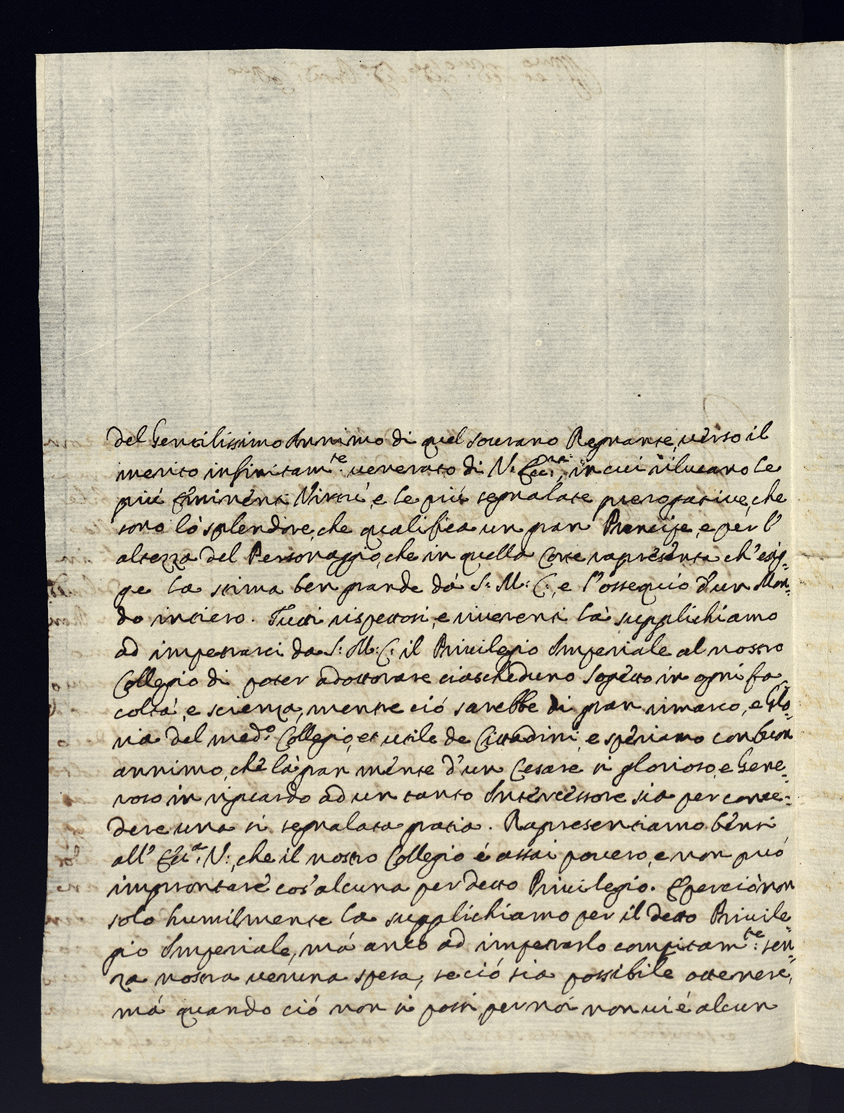 del Gentilissimo Annimo di quel sourano Regnante, uerso il
merito infinitam.te uenerato di V. Ecc.za, in cui rilucano le
più Eminenti Virtù, e le più segnalate prerogatiue, che
sono lo splendore, che qualifica un gran Prencipe, e per l'
altezza del Personaggio, che in quella Corte rapresenta ch'esig=
ge la stima ben grande da S. M. C., e l'ossequio d'un Mon=
do intiero. Tutti rispettosi, e riuerenti la supplichiamo
ad impetrarci da S. M. C. il Priuilegio Imperiale al nostro
Collegio di poter adottorare ciascheduno Sogetto in ogni fa
coltà, e scienza, mentre ciò sarebbe di gran rimarco, e Glo=
ria del med.o Collegio, et utile de Cittadini, e speriamo con buon
annimo, che la gran mente d'un Cesare si glorioso, e Gene=
roso in riguardo ad un tanto Intercessore sia per conce=
dere una si segnalata gratia. Rapresentiamo bensi
all' Ecc.a V., che il nostro Collegio è assai pouero, e non può
improntare cos'alcuna per detto Priuilegio. E perciò non
solo humilmente la supplichiamo per il detto Priuile
gio Imperiale, mà anco ad impetrarlo compitam.te sen=
za nostra ueruna spesa, se ciò sia possibile ottenere,
mà quando ciò non si possi, per noi non ui è alcun